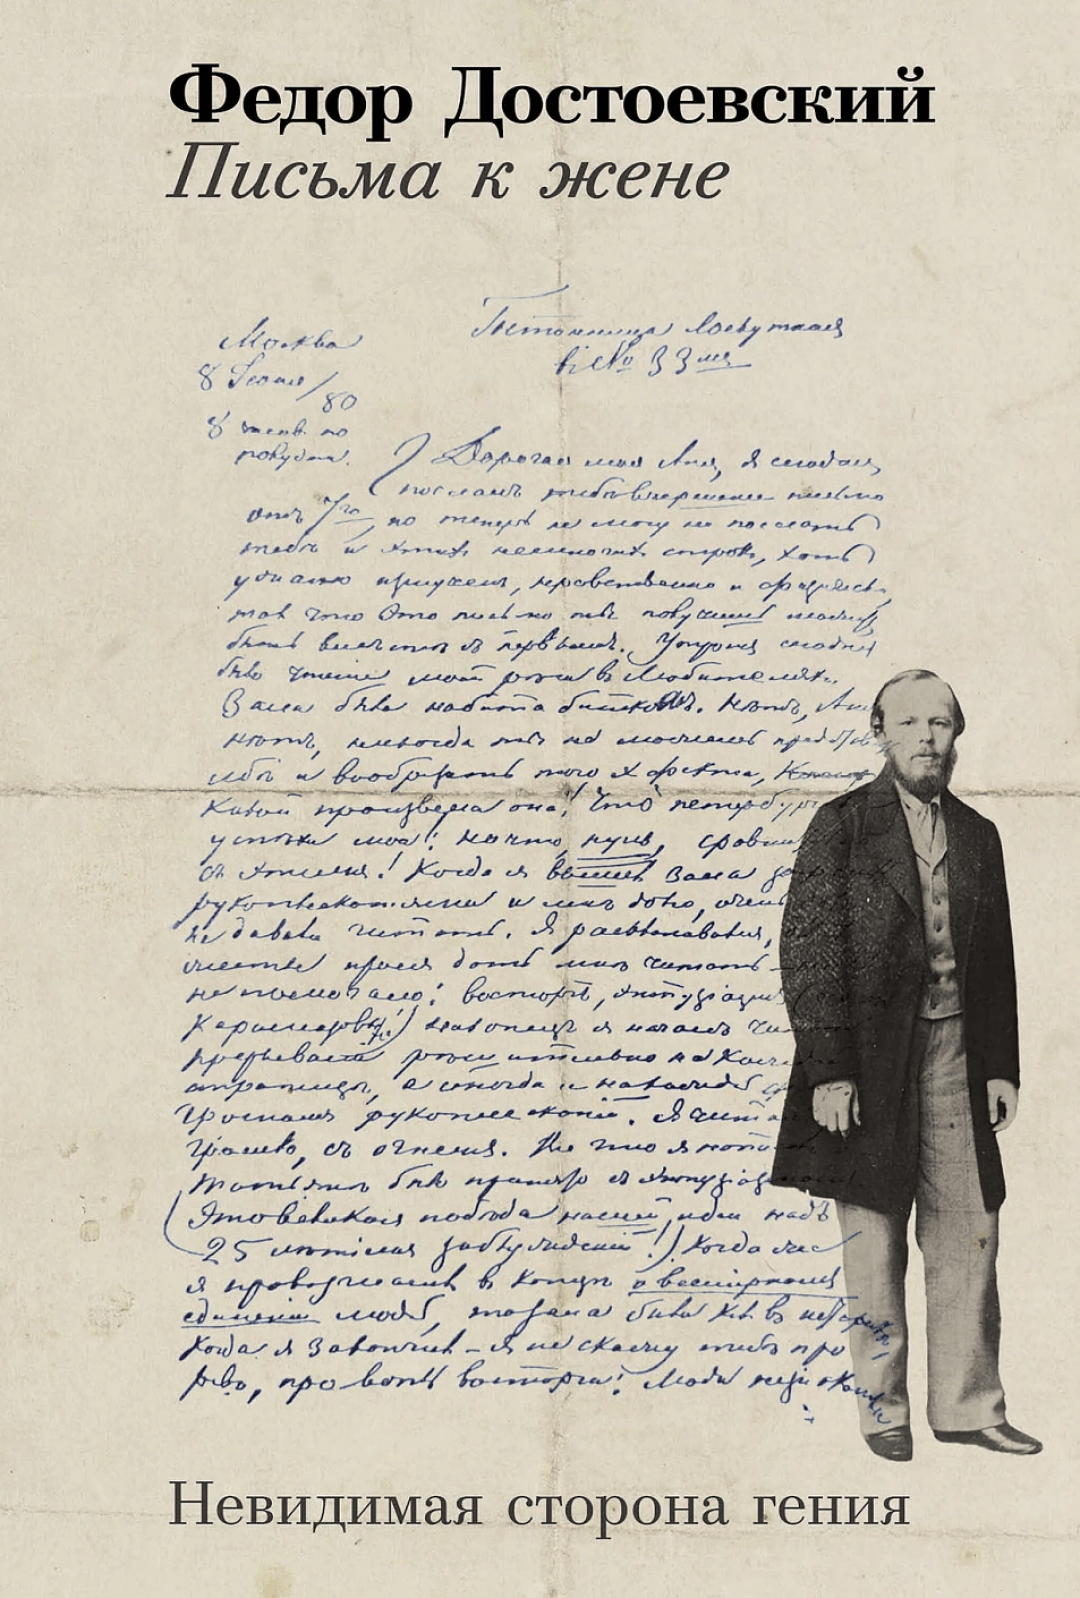 Федор Достоевский
Письма к жене
Москва
Гостинница Лоскутная
8 Іюня/80
въ № 33мъ
8 часов. по
полудни.
Дорогая моя Аня, я сегодня
послалъ тебѣ вчерашнее письмо
отъ 7го, но теперь не могу не послать
тебѣ и этихъ немногихъ строкъ, хоть
ужасно измученъ, нравственно и физически,
такъ что это письмо ты получишь можетъ
быть вмѣстѣ съ первымъ. Утромъ сегодня
было чтеніе моей рѣчи въ Любителяхъ.
Зала была набита биткомъ. Нѣтъ, Аня
нѣтъ, никогда ты не можешь представить
себѣ и вообразить того эфекта,
какой произвела она! Что петербургскіе
успѣхи мои! Ничто, нуль,
съ этимъ! Когда я вышелъ зала
рукоплесканіями и мнѣ долго, очень
не давали читать. Я раскланивался,
жесты прося дать мнѣ читать —
не помогало: восторгъ, энтузіазмъ
Карамазовы!) Наконецъ я началъ
прерывали рѣшительно на каждой
страницѣ, а иногда и на каждой
громомъ рукоплесканій. Я читалъ
громко, съ огнемъ. Все что я
Татьянѣ было принято съ энтузіазмомъ
(Это великая побѣда нашей идеи надъ
25 лѣтіемъ заблужденій!) Когда же
я провозгласилъ въ концѣ о всемірномъ
единеніи людей, то зала была какъ въ истерикѣ,
когда я закончилъ — я не скажу тебѣ про
ревъ, про вопль восторга: люди незнакомые
Невидимая сторона гения